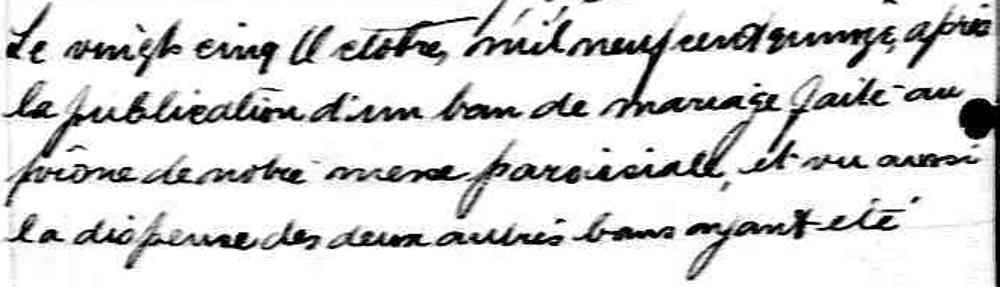 Le vingt cinq Octobre, mil neuf cent quinze, après
la publication d'un ban de mariage faite au
prône de notre messe paroissiale, et vu aussi
la dispense des deux autres bans ayant été